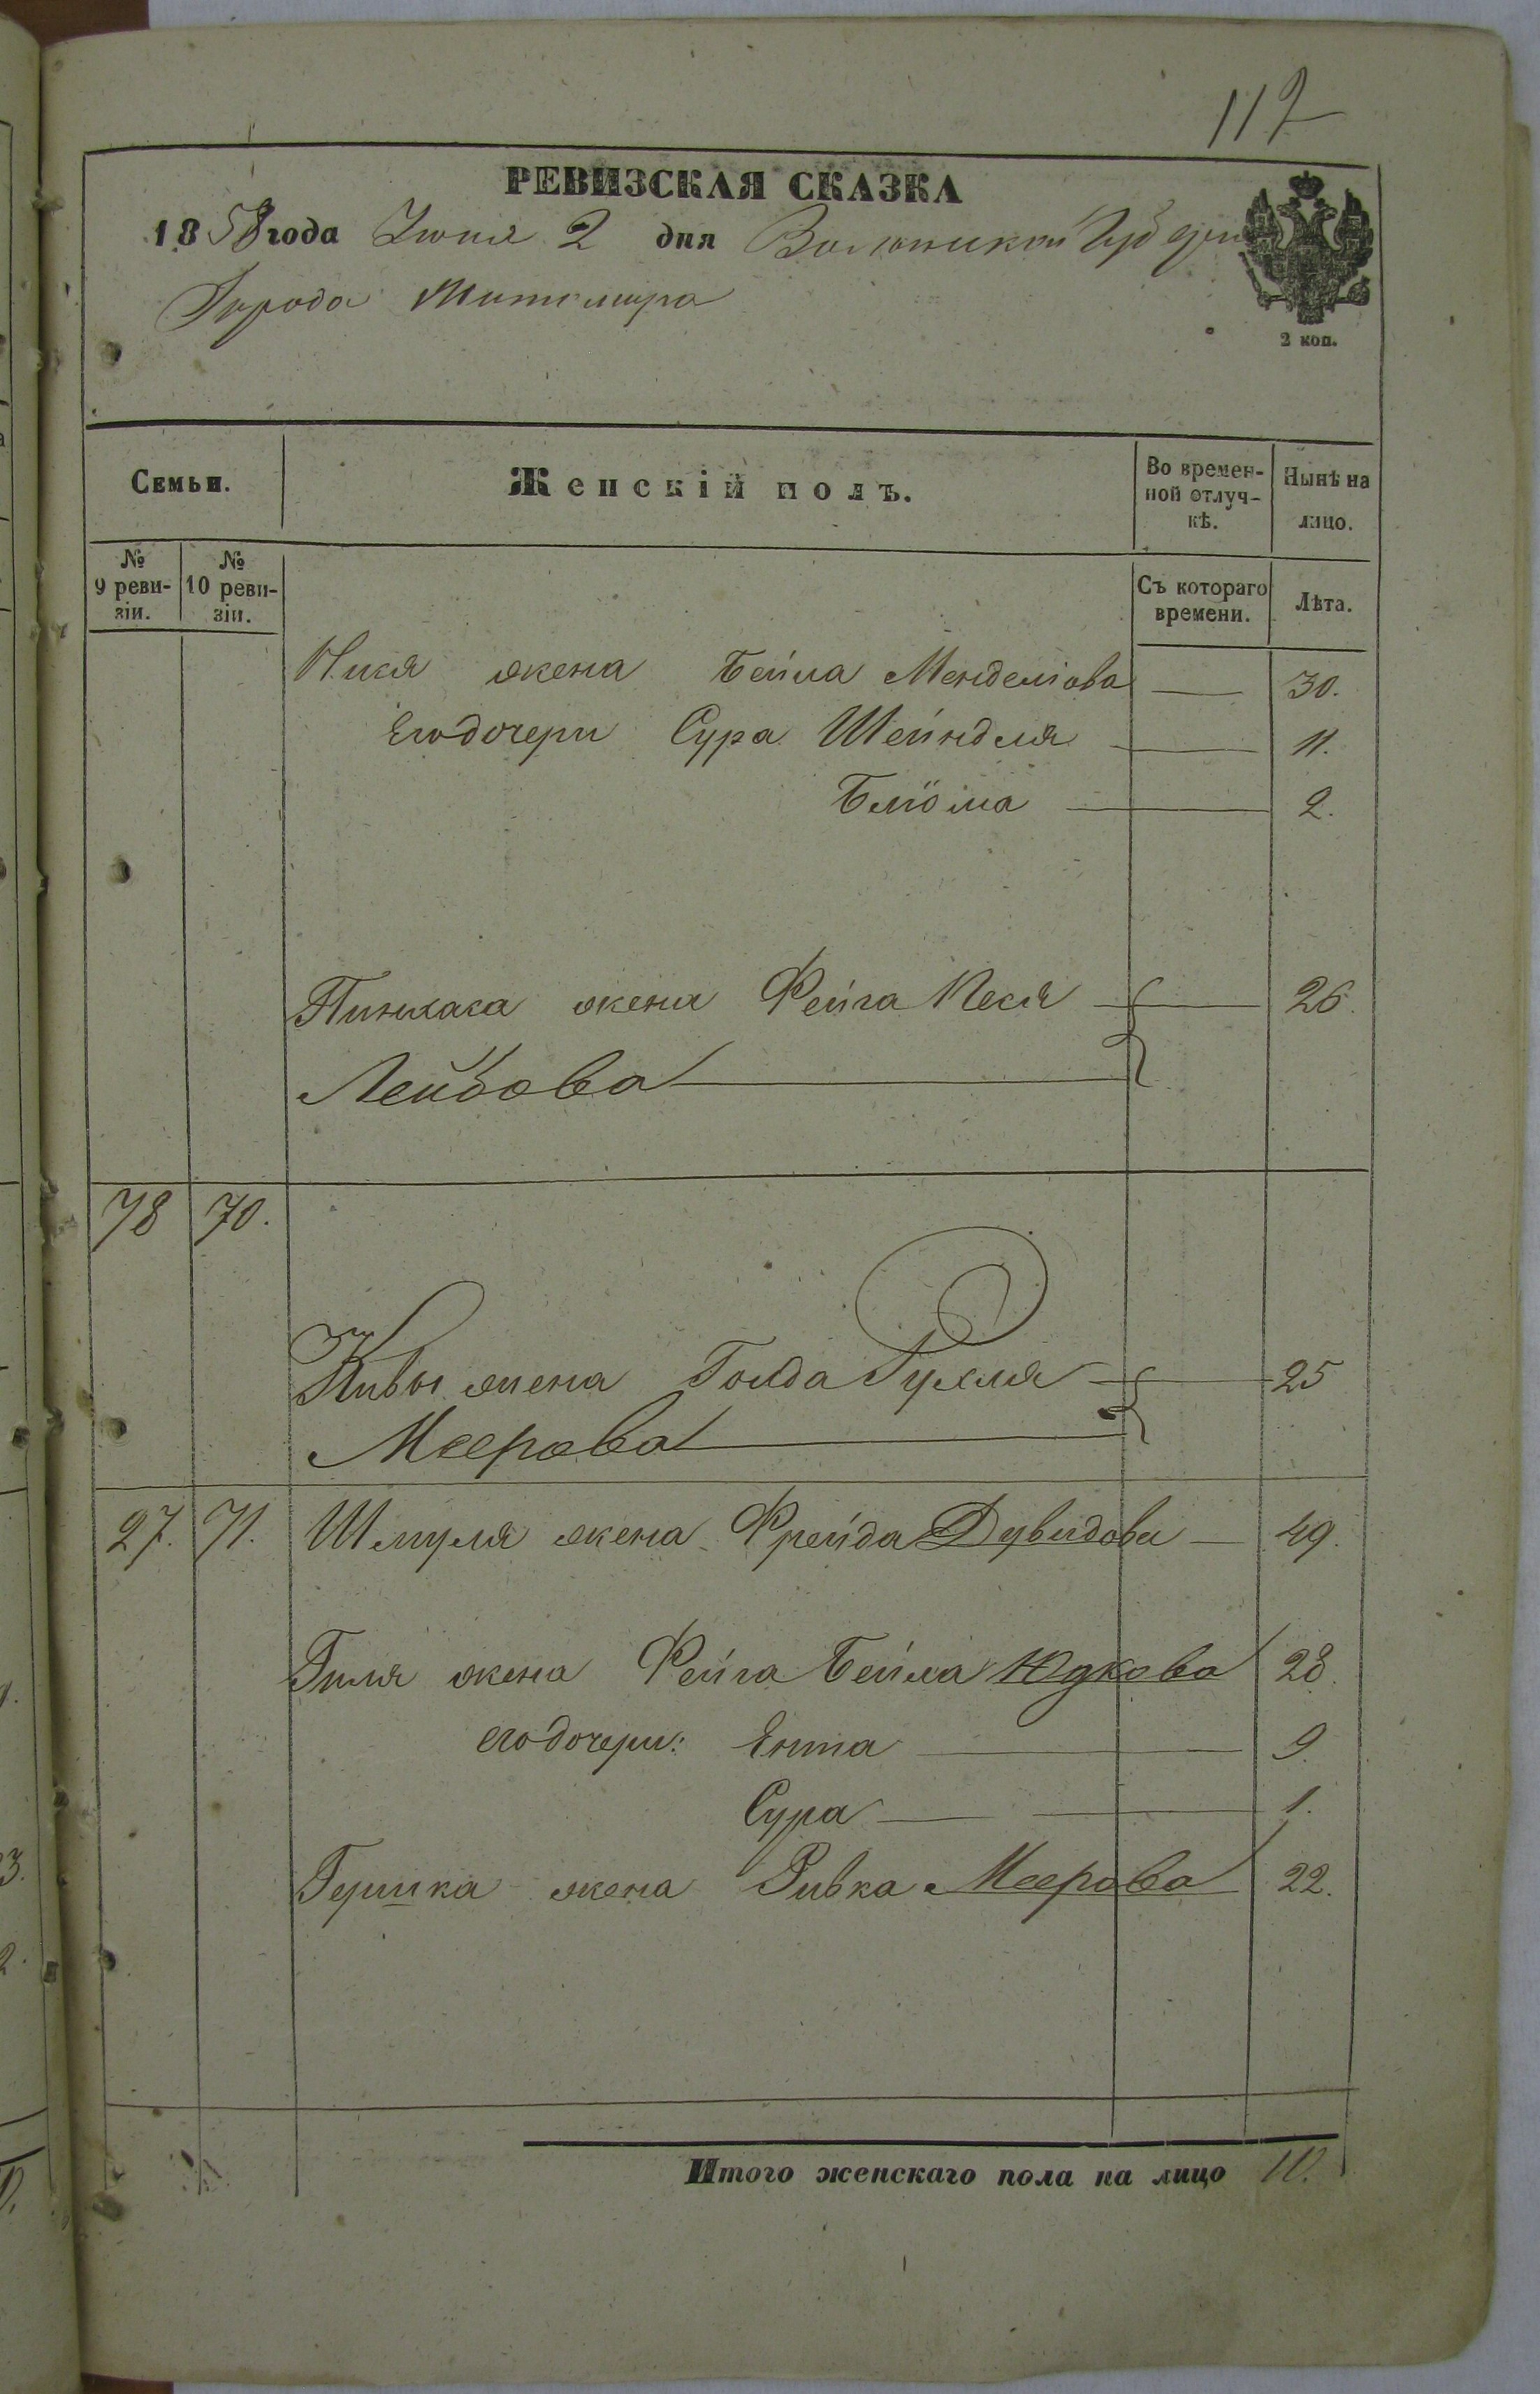 117
РЕВИЗСКАЯ СКАЗКА
1858 года Июня 2 дня Волынской Губерни
Города Житомира
2 коп.
Семьи. Женскій полъ. Во времен- Нынѣ на
ной отлуч- лицо.
кѣ.
№ № Съ котораго Лѣта.
9 реви- 10 реви- времени.
зіи. зіи.
жена Бейла Менделіова 30.
Его дочери Сура Шейндля 11.
Блюма 2.
Пинхаса жена Фейга Песя 26.
Лейбова
78 70.
Кивы жена Голда Рухля 25
Меерова
27. 71. Шмуля жена Фрейда Дувидова 49.
Гиля жена Фейга Бейла Юдкова 28.
его дочери: Ента 9.
Сура 1.
Гершка жена Ривка Меерова 22.
Итого женскаго пола на лицо 10.